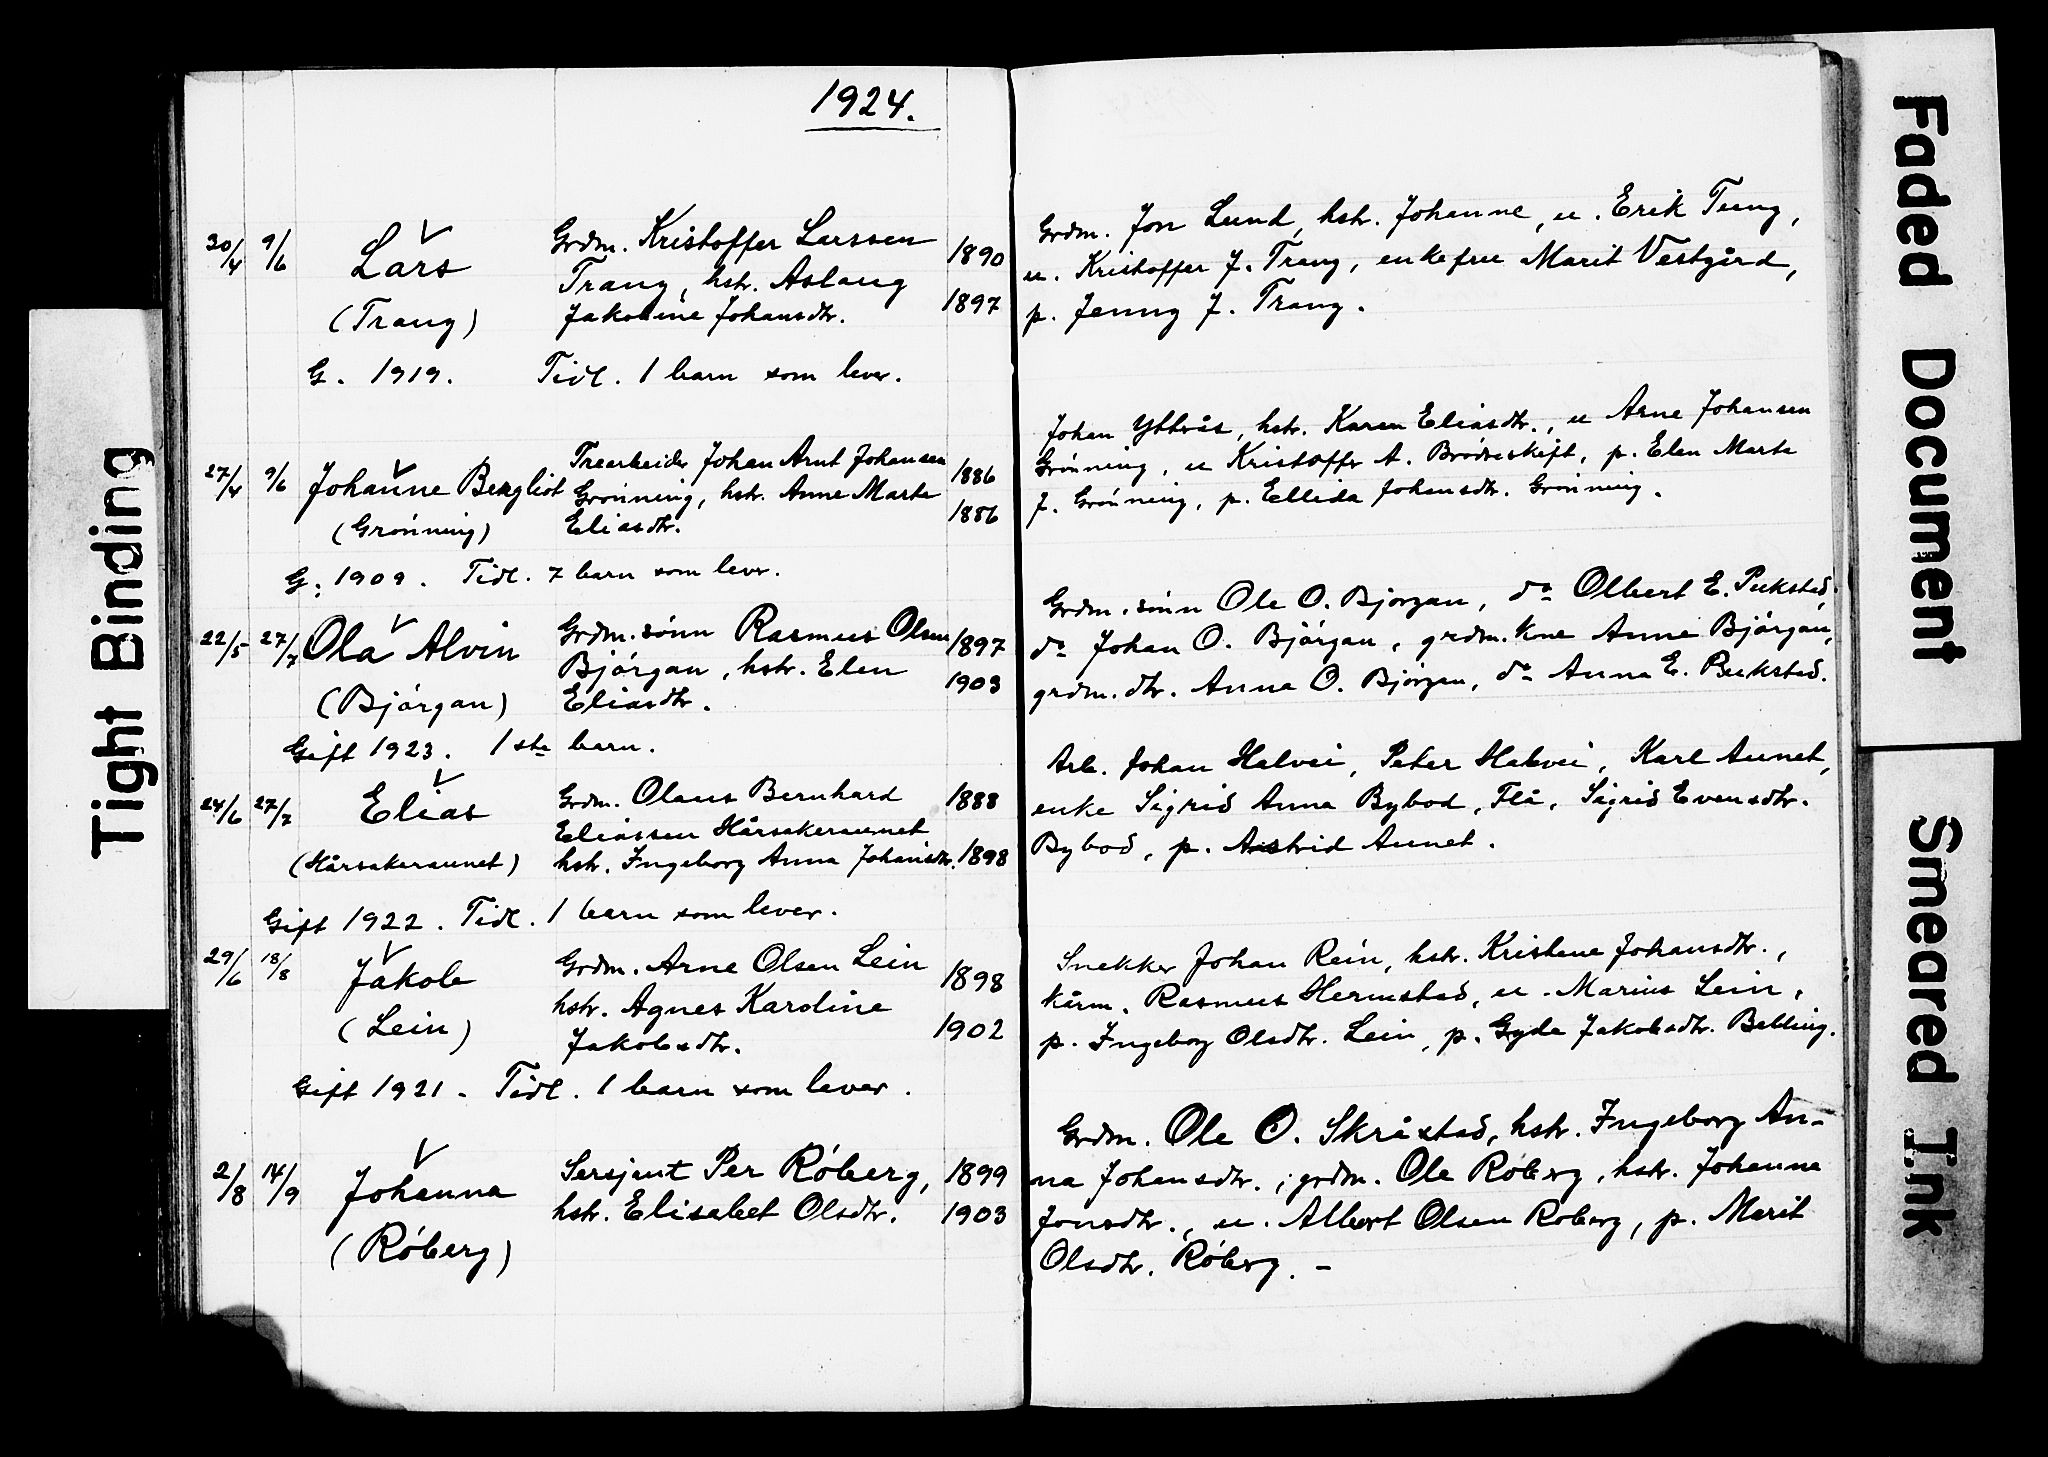 1924.
30/4 9/6 Lars
(Trang)
Grdm. Kristoffer Larssen 1890
Trang, hstr. Aslaug
Jakobine Johansdtr. 1897
G. 1919. Tidl. 1 barn som lever.
Grdm. Jon Lund, hstr. Johanne, u. Erik Tung,
u. Kristoffer J. Trang, enkefru Marit Vestgård,
p. Jenny J. Trang.
27/4 9/6 Johanne Bergliot
(Grønning)
Trearbeider Johan Arnt Johansen 1886
Grønning, hstr. Anne Marta
Eliasdtr. 1886
G. 1909. Tidl. 7 barn som lever.
Johan Ytterås, hstr. Karen Eliasdtr., u Arne Johansen
Grønning, u Kristoffer A. Brødreskift, p. Elen Marta
J. Grønning, p. Ellida Johansdtr. Grønning.
22/5 27/7 Ola Alvin
(Bjørgan)
Grdm.sønn Rasmus Olsen 1897
Bjørgan, hstr. Elen 1903
Eliasdtr.
Gift 1923. 1ste barn.
Grdm.sønn Ole O. Bjørgan, do Olbert E. Pukstad,
do Johan O. Bjørgan, grdm.kone Anna Bjørgan,
grdm.dtr. Anna O. Bjørgan, do Anna E. Pukstad.
24/6 27/7 Elias
(Hårsakeraunet)
Grdm. Olaus Bernhard 1888
Eliassen Hårsakeraunet
hstr. Ingeborg Anna Johansdtr. 1898
Gift 1922. Tidl. 1 barn som lever.
Arb. Johan Halvei, Peter Halvei, Karl Aunet,
enke Sigrid Anna Bybod, Flå, Sigrid Evensdtr.
Bybod, p. Astrid Aunet.
29/6 18/8 Jakob
(Lein)
Grdm. Arne Olsen Lein 1898
hstr. Agnes Karoline
Jakobsdtr. 1902
Gift 1921. Tidl. 1 barn som lever.
Snekker Johan Rein, hstr. Kristine Johansdtr.,
kårm. Rasmus Hermstad, u. Marius Lein,
p. Ingeborg Olsdtr. Lein, p. Gyda Jakobsdtr. Belling.
2/8 14/9 Johanna
(Røberg)
Sersjant Per Røberg, 1899
hstr. Elisabet Olsdtr. 1903
Grdm. Ole O. Skråstad, hstr. Ingeborg An-
na Johansdtr., grdm. Ole Røberg, hstr. Johanna
Jonsdtr., u. Albert Olsen Røberg, p. Marit
Olsdtr. Røberg. –
Tight Binding
Faded Document
Smeared Ink